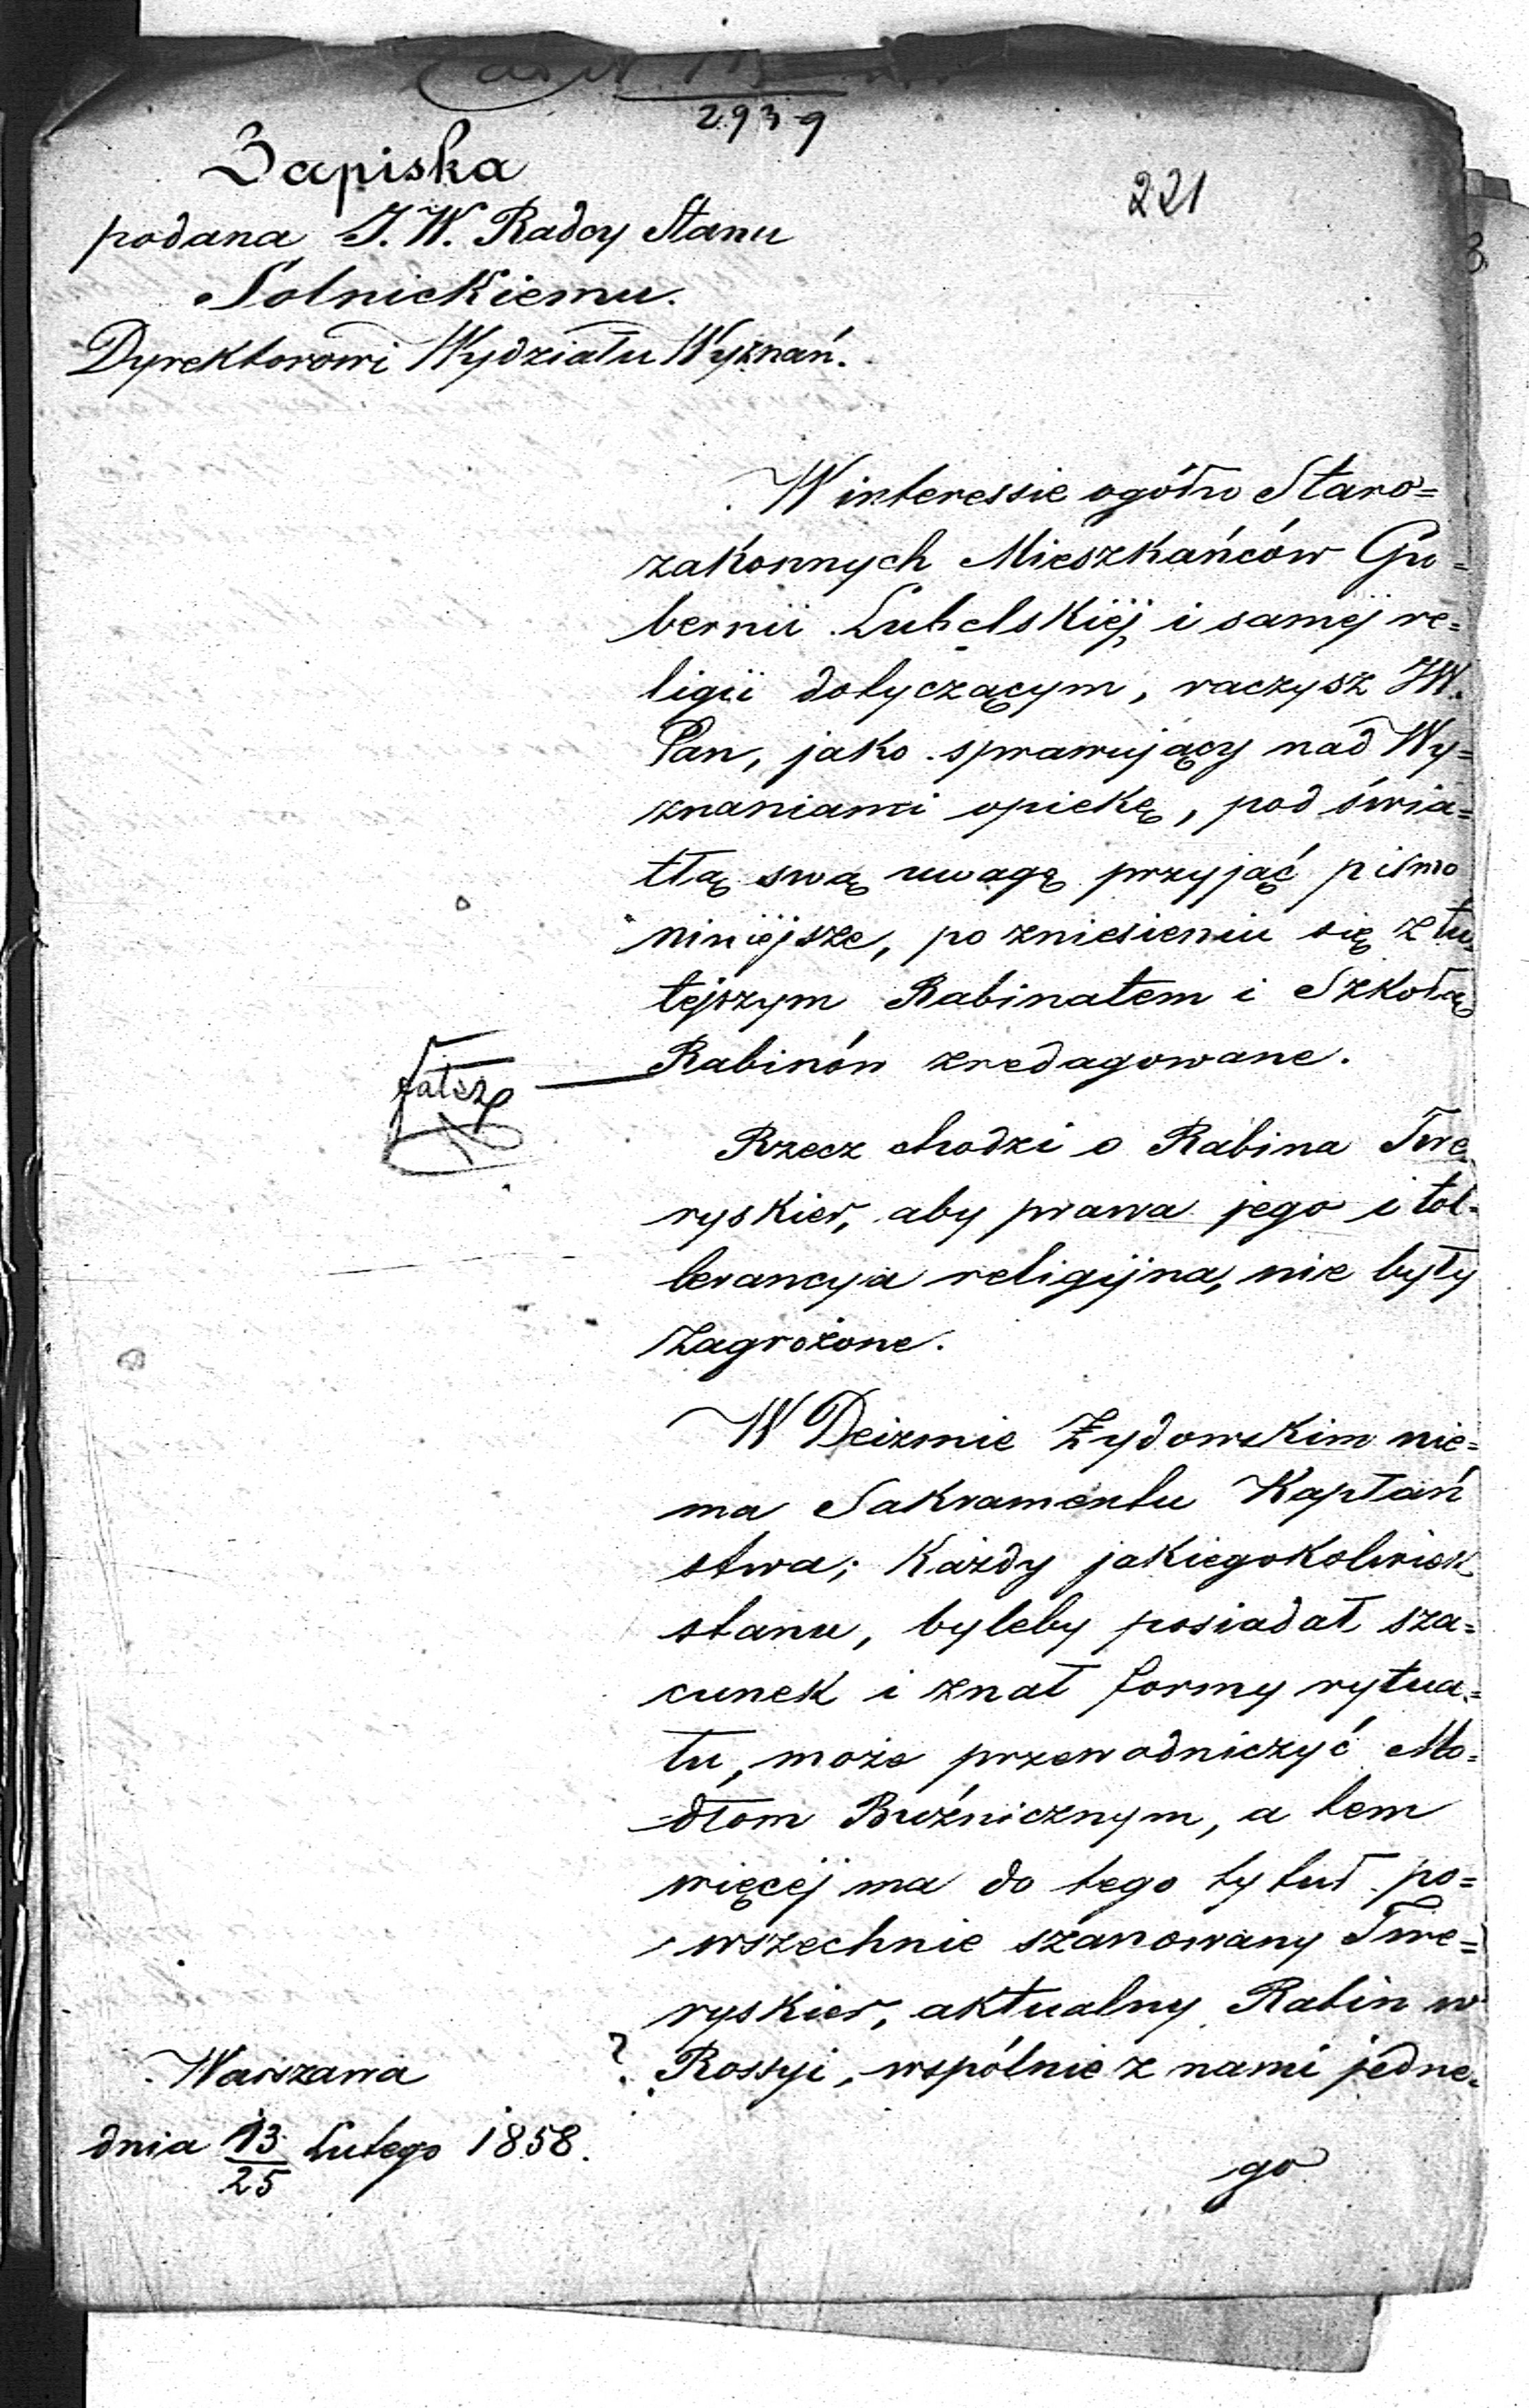 2939
221
Zapiska
podana J.W. Radcy Stanu
Solnickiemu.
Dyrektorowi Wydziału Wyznań.
W interessie ogółu Staro=
zakonnych Mieszkańców Gu=
bernii Lubelskiéj, i saméj re=
ligii dotyczącym, raczysz JW.
Pan, jako sprawujący nad Wy=
znaniami opiekę, pod świa=
tłą swą uwagę przyjąć pismo
niniéjsze, po zniesieniu się z tu=
tejszym Rabinatem i Szkołą
Rabinów zredagowane.
fałsz
Rzecz chodzi o Rabina Twe=
ryskier, aby prawa jego i tol=
lerancya religijna, nie były
zagrożone.
W Deizmie Żydowskim nie=
ma Sakramentu Kapłań
stwa; Każdy jakiegokolwiek
stanu, byleby posiadał sza=
cunek i znał formy rytua=
łu, może przewodniczyć Mo=
dłom Bużnicznym, a tem
więcéj ma do tego tytuł po=
wszechnie szanowany Twe=
ryskier, aktualny Rabin w
? Rossyi, wspólnie z nami jedne=
go
Warszawa
dnia 13/25 Lutego 1858.